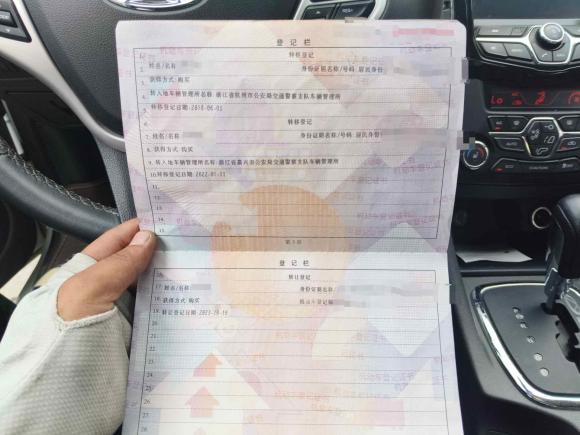 登记栏
转移登记
姓名/名称 身份证明名称/号码 居民身份
获得方式 购买
转入地车辆管理所名称 浙江省杭州市公安局交通警察支队车辆管理所
转移登记日期 2018-06-01
转移登记
7. 姓名/名称 身份证明名称/号码 居民身份
8. 获得方式 购买
9. 转入地车辆管理所名称 浙江省嘉兴市公安局交通警察支队车辆管理所
10.转移登记日期 2022-01-11
11.
12.
13.
14.
15.
第 3 页
登记栏
16. 转让登记
17. 姓名/名称 身份证明名称
18. 获得方式 购买 机动车登记编
19. 转让登记日期 2023-10-19
20.
21.
22.
23.
24.
25.
26.
27.
28.